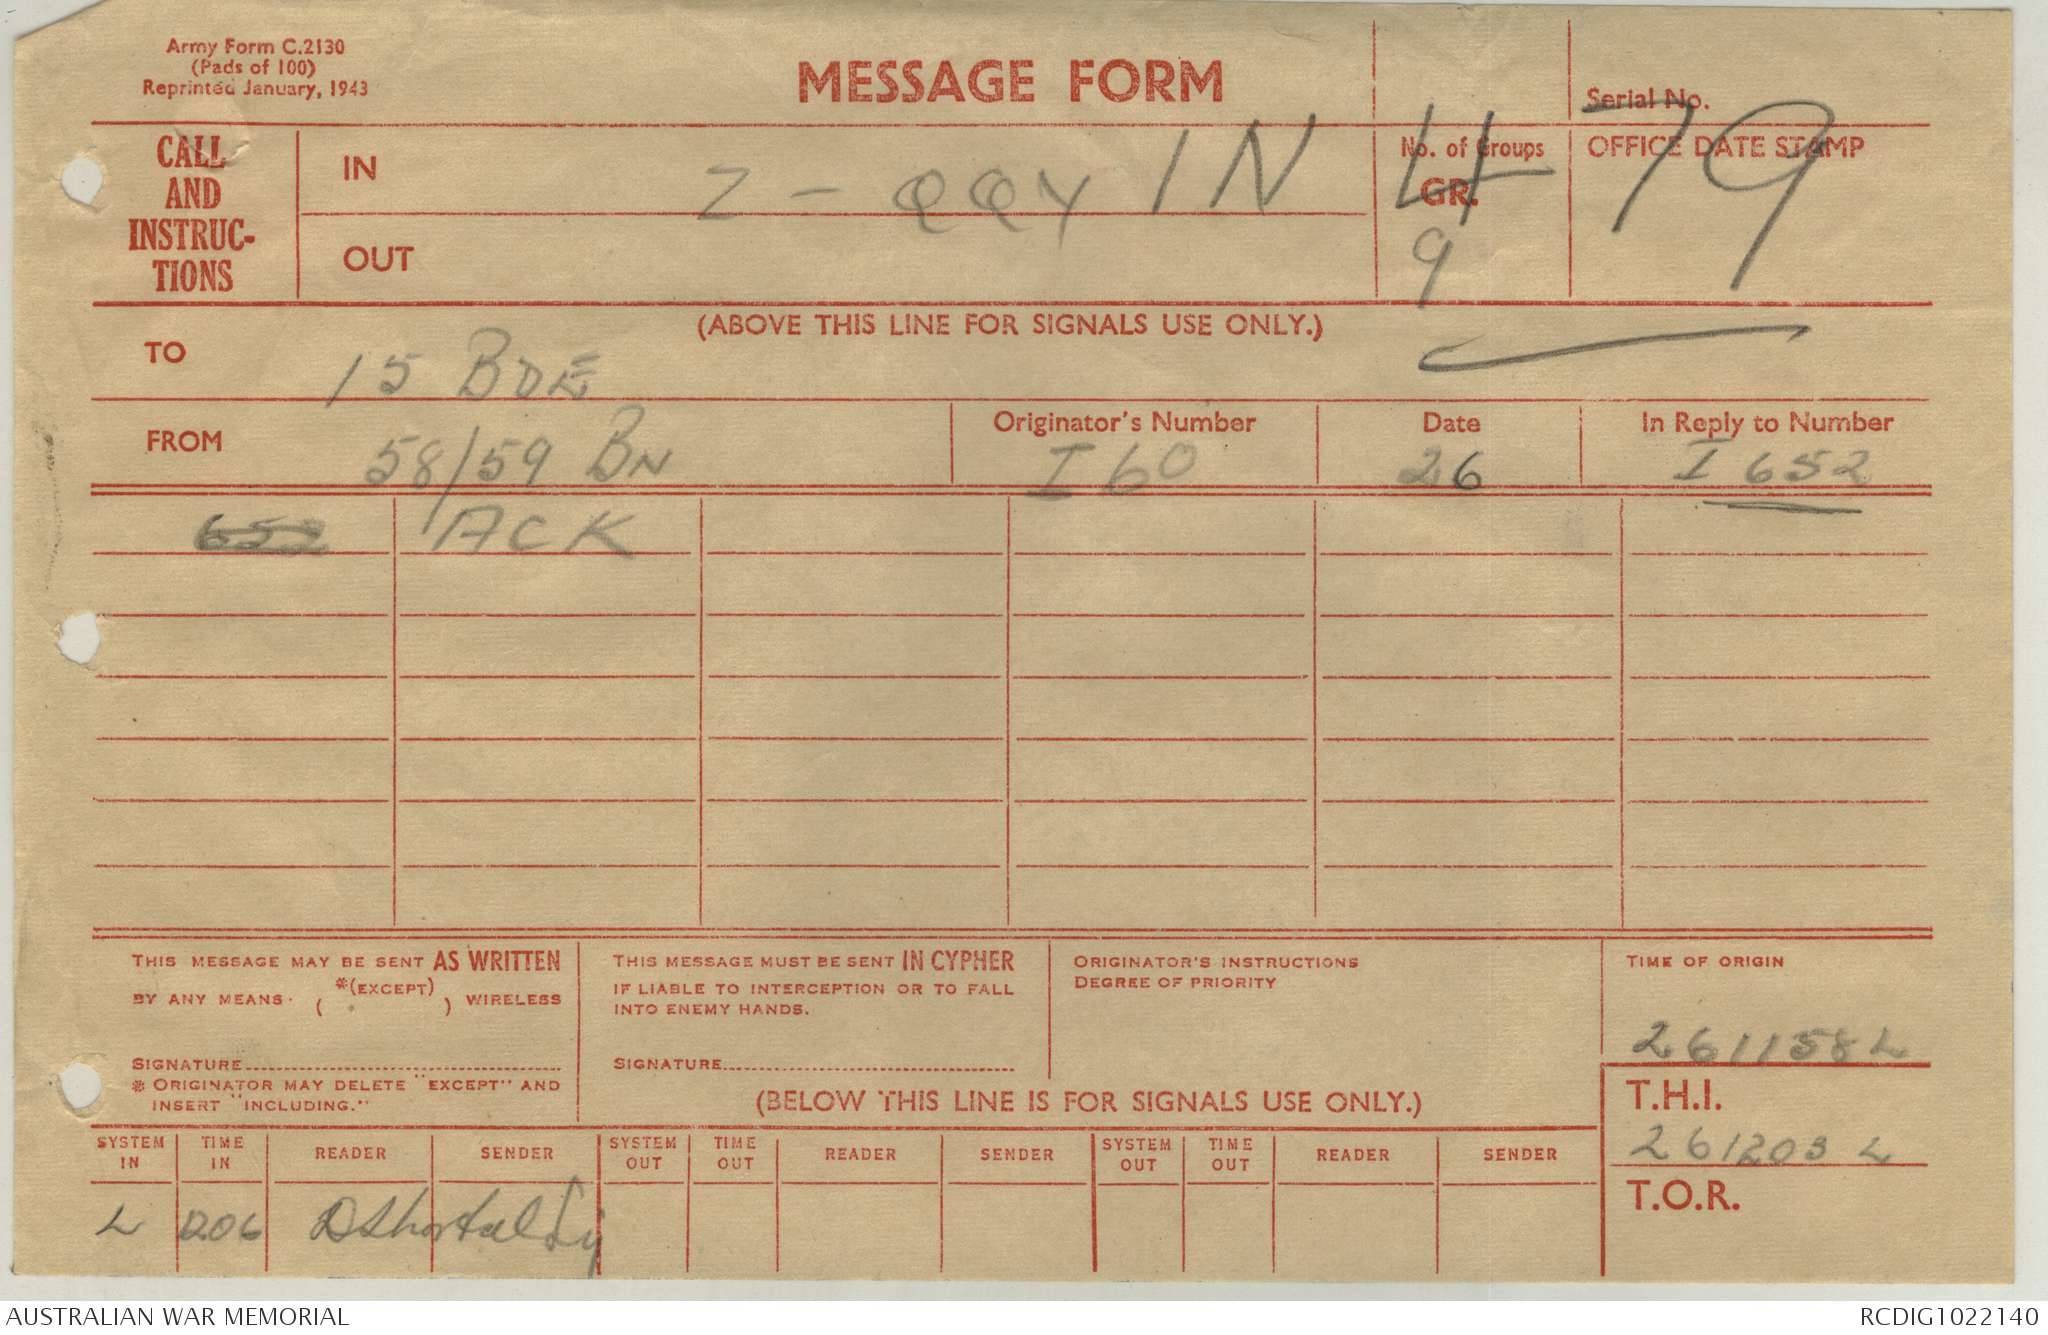 Army Form C.2130
(Pads of 100)
Reprinted January, 1943
MESSAGE FORM
Serial No.
CALL AND INSTRUC-TIONS
IN Z - QQY IN
OUT
No. of Groups
GR.
9
OFFICE DATE STAMP
79
(ABOVE THIS LINE FOR SIGNALS USE ONLY.)
TO 15 BDE
FROM 58/59 BN
Originator's Number I 60
Date 26
In Reply to Number I 652
652 ACK
THIS MESSAGE MAY BE SENT AS WRITTEN
BY ANY MEANS. ( *(EXCEPT) ) WIRELESS
SIGNATURE
* ORIGINATOR MAY DELETE "EXCEPT" AND
INSERT "INCLUDING."
THIS MESSAGE MUST BE SENT IN CYPHER
IF LIABLE TO INTERCEPTION OR TO FALL
INTO ENEMY HANDS.
SIGNATURE
ORIGINATOR'S INSTRUCTIONS
DEGREE OF PRIORITY
TIME OF ORIGIN
261158L
(BELOW THIS LINE IS FOR SIGNALS USE ONLY.)
T.H.I.
261203 L
T.O.R.
SYSTEM IN TIME IN READER SENDER SYSTEM OUT TIME OUT READER SENDER SYSTEM OUT TIME OUT READER SENDER
L 1206
AUSTRALIAN WAR MEMORIAL
RCDIG1022140